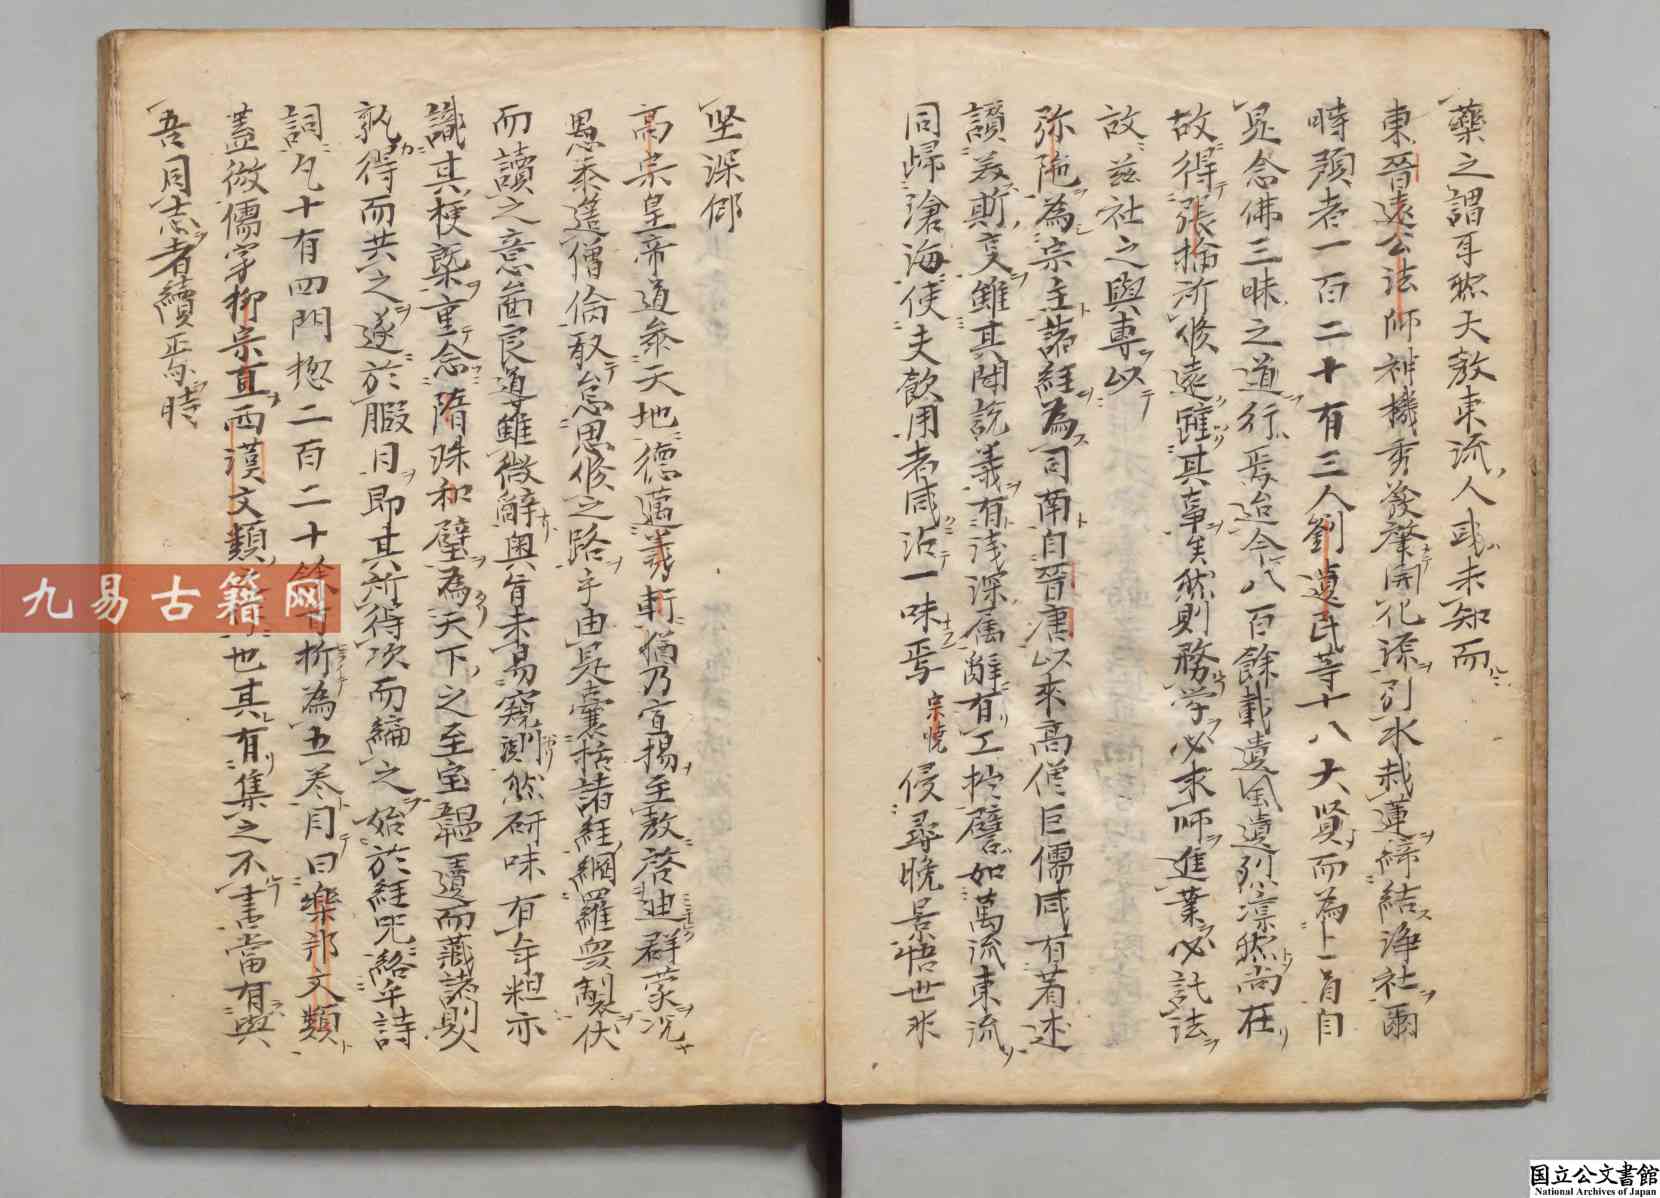 藥之謂耳然大教東流人或未知而
東晉遠公法師神機秀發肇開化源引水栽蓮締結淨社爾
時預者一百二十有三人劉遺民等十八大賢而為上首自
是念佛三昧之道行焉迨今八百餘載遺風遺烈凛然尚在
故得張掄所修遠躅其事矣然則務学必求師進業必託法
故茲社之興專以
弥陁為宗主諸經為司南自晉唐以来高僧巨儒咸有著述
讃美斯文雖其陳説義有淺深属辭有工拙譬如萬流東流
同歸滄海使夫飲用者咸沾一味焉宗曉侵尋晚景悟世非
堅深仰
高宗皇帝道参天地德邁羲軒猶乃宣揚至教啓迪群蒙况
愚忝蓬僧倫敢怠思修之路乎由是囊括諸經網羅衆製伏
而讀之意啚良導雖微辭奥旨未易窺測然研味有年粗亦
識其梗槩重念隋珠和璧為天下之至宝韞匵而藏諸則
孰得而共之遂於暇日即其所得次而編之始於經咒終乎詩
詞凡十有四門摠二百二十餘首析為五卷目曰樂邦文類
蓋傚儒宗柳宗直西漢文類之作也其有集之不書當有與
吾同志者續焉時
九易古籍网
国立公文書館
National Archives of Japan